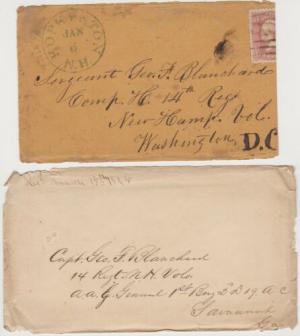 HOPKINTON
JAN
6
N.H.
Sergeant Geo. F. Blanchard
Comp. H. 14th Regt
New Hamp. Vol.
Washington, D.C
Capt. Geo. F. Blanchard
14 Regt. N.H. Vols
a a Genrl 1st Brig 2d D 19 A C
Savannah
Ga